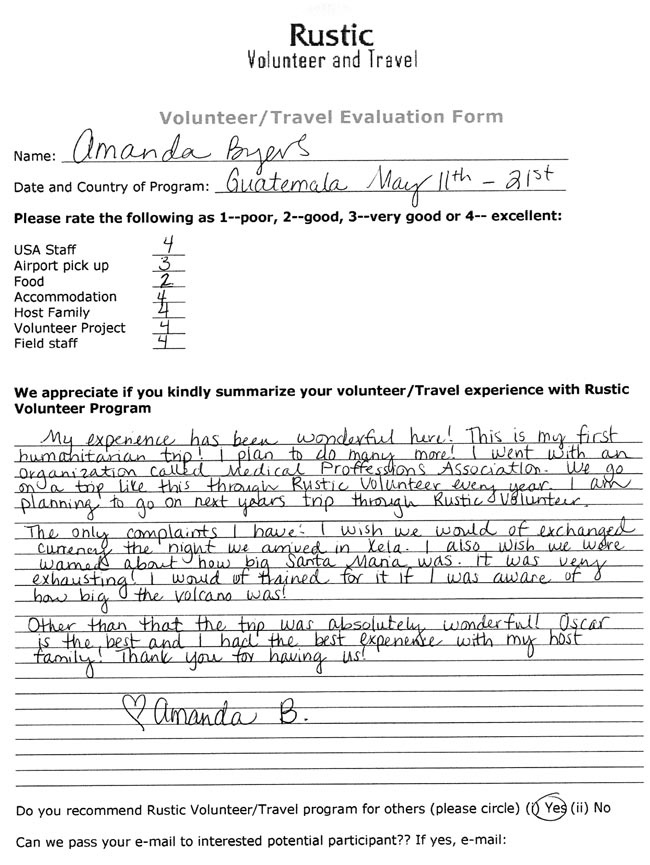 Rustic
Volunteer and Travel
Volunteer/Travel Evaluation Form
Name: Amanda Byers
Date and Country of Program: Guatemala May 11th - 21st
Please rate the following as 1--poor, 2--good, 3--very good or 4-- excellent:
USA Staff 4
Airport pick up 3
Food 2
Accommodation 4
Host Family 4
Volunteer Project 4
Field staff 4
We appreciate if you kindly summarize your volunteer/Travel experience with Rustic
Volunteer Program
My experience has been wonderful here! This is my first
humanitarian trip! I plan to do many more! I went with an
organization called Medical Proffessions Association. We go
on a trip like this through Rustic Volunteer every year. I am
planning to go on next years trip through Rustic Volunteer.
The only complaints I have: I wish we would of exchanged
currency the night we arrived in Xela. I also wish we were
warned about how big Santa Maria was. It was very
exhausting! I would of trained for it if I was aware of
how big the volcano was!
Other than that the trip was absolutely wonderful! Oscar
is the best and I had the best experience with my host
family! Thank you for having us!
♡ Amanda B.
Do you recommend Rustic Volunteer/Travel program for others (please circle) (i) Yes (ii) No
Can we pass your e-mail to interested potential participant?? If yes, e-mail: